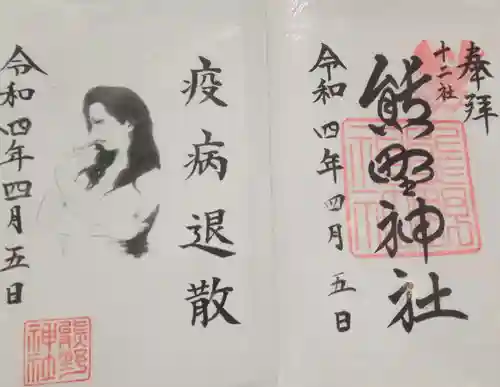 奉拝
十二社
熊野神社
令和四年四月五日
疫病退散
令和四年四月五日
熊野
神社